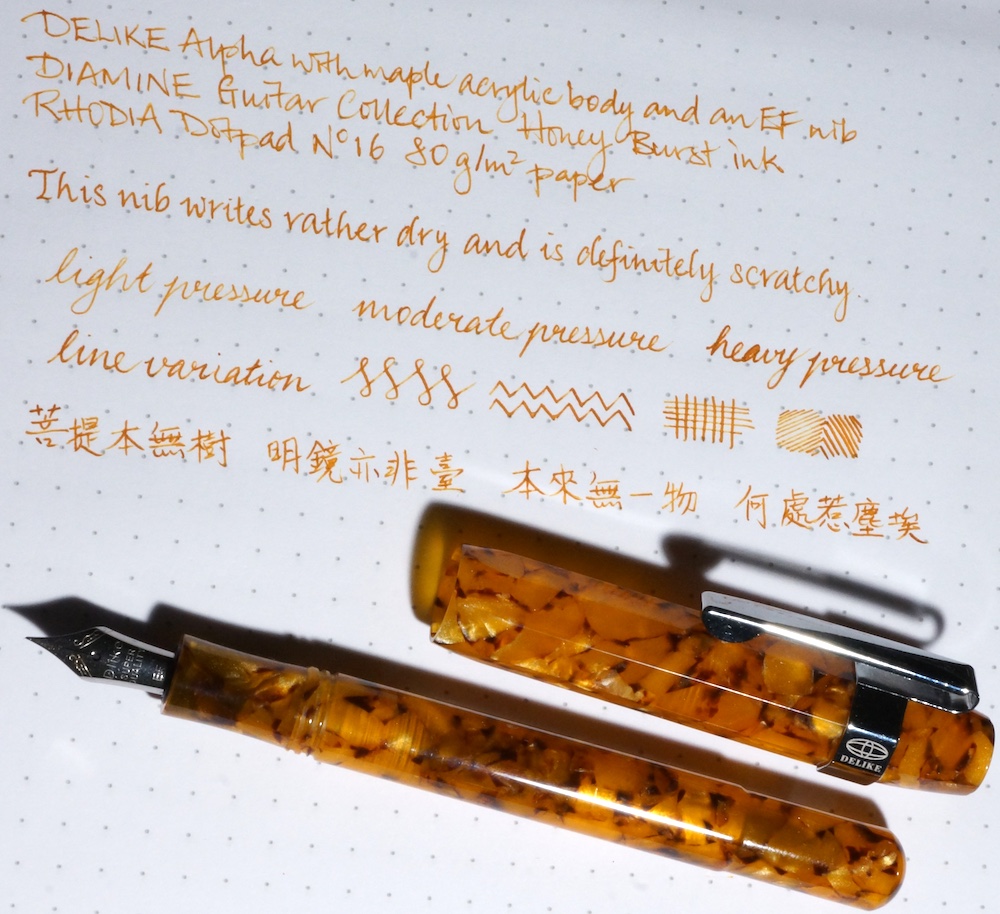 DELIKE Alpha with maple acrylic body and an EF nib
DIAMINE Guitar Collection Honey Burst ink
RHODIA Dotpad N°16 80g/m² paper
This nib writes rather dry and is definitely scratchy.
light pressure moderate pressure heavy pressure
line variation
菩提本無樹 明鏡亦非臺 本來無一物 何處惹塵埃
SUPER
QUALITY
DELIKE